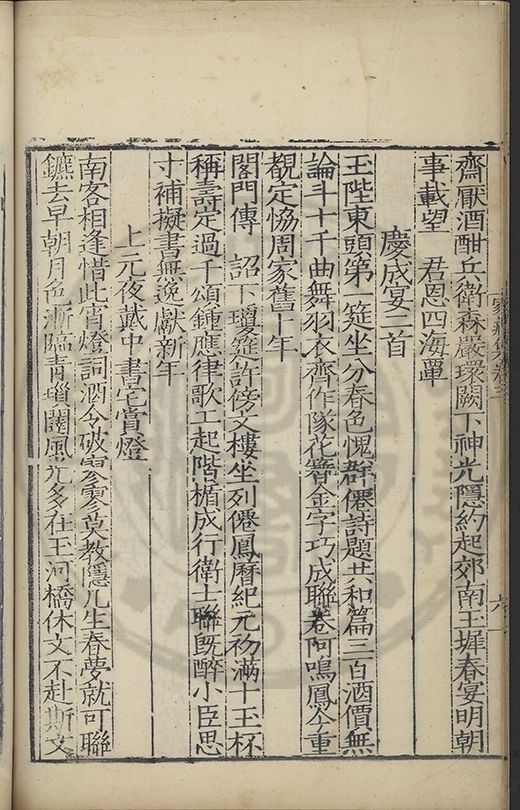 齋厭酒酣兵衛森嚴環闕下神光隱約起郊南玉墀春宴明朝
事載望　君恩四海覃
慶成宴二首
玉陛東頭第一筵坐分春色愧群僊詩題共和篇三百酒價無
論斗十千曲舞羽衣齊作隊花簪金字巧成聯卷阿鳴鳳今重
覩定恊周家舊卜年
閤門傳　詔下瓊筵許傍文樓坐列僊鳳曆紀元初滿十玉杯
稱壽定過千頌鍾應律歌工起階楯成行衛士聯旣醉小臣思
寸補擬書無逸獻新年
上元夜戴中書宅賞燈
南客相逢惜此宵燈詞酒令破寥寥莫教隱几生春夢就可聯
鑣去早朝月色漸臨青瑣闥風光多在玉河橋休文不赴斯文